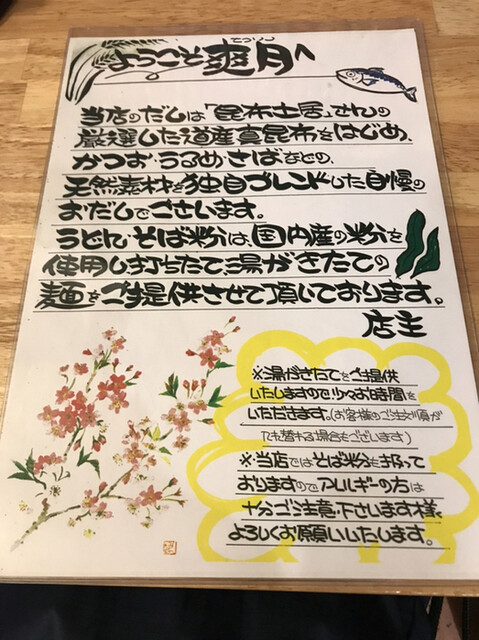 ようこそ爽月へ
当店のだしは「昆布土居」さんの
厳選した道産真昆布をはじめ、
かつお・うるめ・さばなどの、
天然素材を独自ブレンドした自慢の
おだしでございます。
うどん・そば粉は、国内産の粉を
使用し打ちたて、湯がきたての
麺をご提供させて頂いております。
店主
※湯がきたてをご提供
いたしますので少々お時間を
いただきます。(お客様のご注文順が
入れ替わる場合もございます)
※当店ではそば粉も扱って
おりますのでアレルギーの方は
十分ご注意下さいます様、
よろしくお願いいたします。